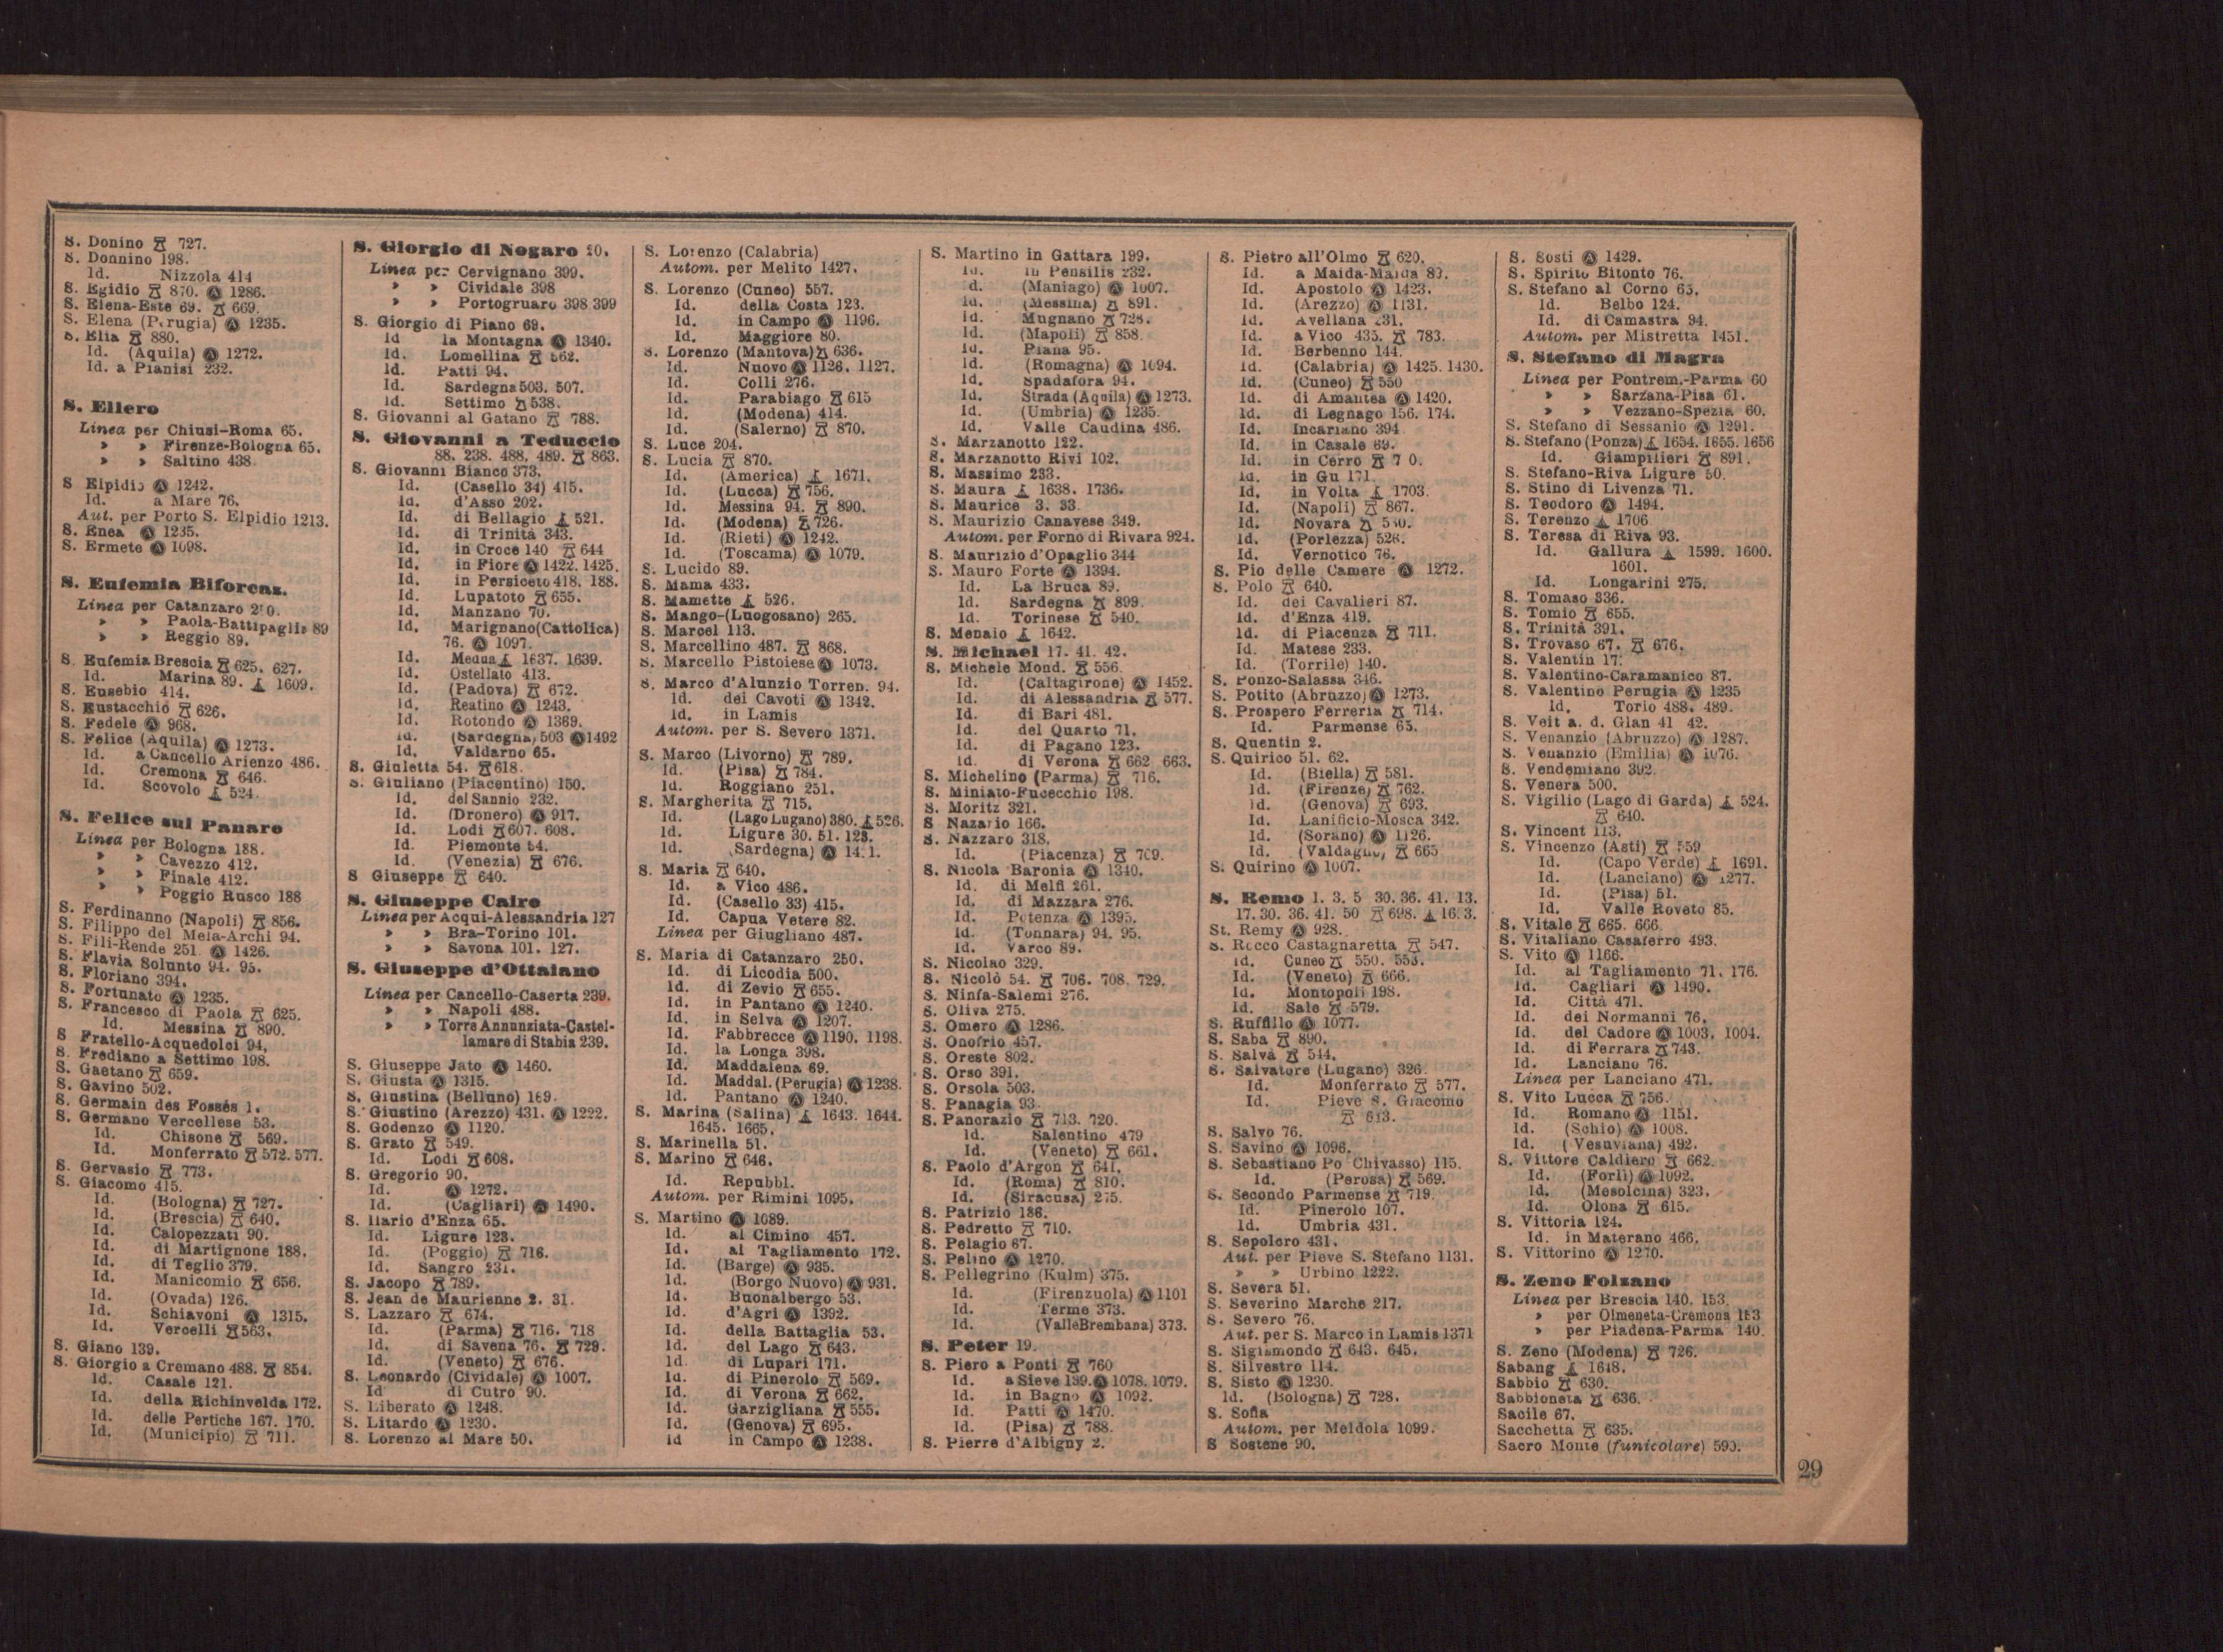 S. Donino 727.
S. Donnino 198.
Id. Nizzola 414
S. Egidio 870. Ⓐ 1286.
S. Elena-Este 69. 669.
S. Elena (Perugia) Ⓐ 1235.
S. Elia 880.
Id. (Aquila) Ⓐ 1272.
Id. a Pianisi 232.
S. Ellero
Linea per Chiusi-Roma 65.
» » Firenze-Bologna 65.
» » Saltino 438
S Elpidio Ⓐ 1242.
Id. a Mare 76.
Aut. per Porto S. Elpidio 1213.
S. Enea Ⓐ 1235.
S. Ermete Ⓐ 1098.
S. Eufemia Biforcaz.
Linea per Catanzaro
» » Paola-Battipaglia 89
» » Reggio 89.
S. Eufemia Brescia 625. 627.
Id. Marina 89. 1609.
S. Eusebio 414.
S. Eustacchio 626.
S. Fedele Ⓐ 968.
S. Felice (Aquila) Ⓐ 1273.
Id. a Cancello Arienzo 486.
Id. Cremona 646.
Id. Scovolo 524.
S. Felice sul Panaro
Linea per Bologna 188.
» » Cavezzo 412.
» » Finale 412.
» » Poggio Rusco 188
S. Ferdinanno (Napoli) 856.
S. Filippo del Mela-Archi 94.
S. Fili-Rende 251. Ⓐ 1426.
S. Flavia Solunto 94. 95.
S. Floriano 394.
S. Fortunato Ⓐ 1235.
S. Francesco di Paola 625.
Id. Messina 890.
S Fratello-Acquedolci 94.
S. Frediano a Settimo 198.
S. Gaetano 659.
S. Gavino 502.
S. Germain des Fossés 1.
S. Germano Vercellese 53.
Id. Chisone 569.
Id. Monferrato 572. 577.
S. Gervasio 773.
S. Giacomo 415.
Id. (Bologna) 727.
Id. (Brescia) 640.
Id. Calopezzati 90.
Id. di Martignone 188.
Id. di Teglio 379.
Id. Manicomio 656.
Id. (Ovada) 126.
Id. Schiavoni Ⓐ 1315.
Id. Vercelli 563.
S. Giano 139.
S. Giorgio a Cremano 488. 854.
Id. Casale 121.
Id. della Richinvelda 172.
Id. delle Pertiche 167. 170.
Id. (Municipio) 711.
S. Giorgio di Nogaro 20.
Linea per Cervignano 399.
» » Cividale 398
» » Portogruaro 398 399
S. Giorgio di Piano 69.
Id la Montagna Ⓐ 1340.
Id. Lomellina 562.
Id. Patti 94.
Id. Sardegna 503. 507.
Id. Settimo 538.
S. Giovanni al Gatano 788.
S. Giovanni a Teduccio
88. 238. 488. 489. 863.
S. Giovanni Bianco 373.
Id. (Casello 34) 415.
Id. d'Asso 202.
Id. di Bellagio 521.
Id. di Trinità 343.
Id. in Croce 140 644
Id. in Fiore Ⓐ 1422. 1425.
Id. in Persiceto 418. 188.
Id. Lupatoto 655.
Id. Manzano 70.
Id. Marignano (Cattolica)
76. Ⓐ 1097.
Id. Medua 1637. 1639.
Id. Ostellato 413.
Id. (Padova) 672.
Id. Reatino Ⓐ 1243.
Id. Rotondo Ⓐ 1369.
Id. (Sardegna) 503 Ⓐ 1492
Id. Valdarno 65.
S. Giuletta 54. 618.
S. Giuliano (Piacentino) 150.
Id. del Sannio 232.
Id. (Dronero) Ⓐ 917.
Id. Lodi 607. 608.
Id. Piemonte 54.
Id. (Venezia) 676.
S Giuseppe 640.
S. Giuseppe Cairo
Linea per Acqui-Alessandria 127
» » Bra-Torino 101.
» » Savona 101. 127.
S. Giuseppe d'Ottaiano
Linea per Cancello-Caserta 239.
» » Napoli 488.
» » Torre Annunziata-Castel-
lamare di Stabia 239.
S. Giuseppe Jato Ⓐ 1460.
S. Giusta Ⓐ 1315.
S. Giustina (Belluno) 169.
S. Giustino (Arezzo) 431. Ⓐ 1222.
S. Godenzo Ⓐ 1120.
S. Grato 549.
Id. Lodi 608.
S. Gregorio 90.
Id. Ⓐ 1272.
Id. (Cagliari) Ⓐ 1490.
S. Ilario d'Enza 65.
Id. Ligure 123.
Id. (Poggio) 716.
Id. Sangro 231.
S. Jacopo 789.
S. Jean de Maurienne 2. 31.
S. Lazzaro 674.
Id. (Parma) 716. 718
Id. di Savena 76. 729.
Id. (Veneto) 676.
S. Leonardo (Cividale) Ⓐ 1007.
Id di Cutro 90.
S. Liberato Ⓐ 1248.
S. Litardo Ⓐ 1230.
S. Lorenzo al Mare 50.
S. Lorenzo (Calabria)
Autom. per Melito 1427.
S. Lorenzo (Cuneo) 557.
Id. della Costa 123.
Id. in Campo Ⓐ 1196.
Id. Maggiore 80.
S. Lorenzo (Mantova) 636.
Id. Nuovo Ⓐ 1126. 1127.
Id. Colli 276.
Id. Parabiago 615
Id. (Modena) 414.
Id. (Salerno) 870.
S. Luce 204.
S. Lucia 870.
Id. (America) 1671.
Id. (Lucca) 756.
Id. Messina 94. 890.
Id. (Modena) 726.
Id. (Rieti) Ⓐ 1242.
Id. (Toscama) Ⓐ 1079.
S. Lucido 89.
S. Mama 433.
S. Mamette 526.
S. Mango-(Luogosano) 265.
S. Marcel 113.
S. Marcellino 487. 868.
S. Marcello Pistoiese Ⓐ 1073.
S. Marco d'Alunzio Torren. 94.
Id. dei Cavoti Ⓐ 1342.
Id. in Lamis
Autom. per S. Severo 1371.
S. Marco (Livorno) 789.
Id. (Pisa) 784.
Id. Roggiano 251.
S. Margherita 715.
Id. (Lago Lugano) 380. 526.
Id. Ligure 30. 51. 123.
Id. Sardegna) Ⓐ
S. Maria 640.
Id. a Vico 486.
Id. (Casello 33) 415.
Id. Capua Vetere 82.
Linea per Giugliano 487.
S. Maria di Catanzaro 250.
Id. di Licodia 500.
Id. di Zevio 655.
Id. in Pantano Ⓐ 1240.
Id. in Selva Ⓐ 1207.
Id. Fabbrecce Ⓐ 1190. 1198.
Id. la Longa 398.
Id. Maddalena 69.
Id. Maddal. (Perugia) Ⓐ 1238.
Id. Pantano Ⓐ 1240.
S. Marina (Salina) 1643. 1644.
1645. 1665.
S. Marinella 51.
S. Marino 646.
Id. Repubbl.
Autom. per Rimini 1095.
S. Martino Ⓐ 1089.
Id. al Cimino 457.
Id. al Tagliamento 172.
Id. (Barge) Ⓐ 935.
Id. (Borgo Nuovo) Ⓐ 931.
Id. Buonalbergo 53.
Id. d'Agri Ⓐ 1392.
Id. della Battaglia 53.
Id. del Lago 643.
Id. di Lupari 171.
Id. di Pinerolo 569.
Id. di Verona 662.
Id. Garzigliana 555.
Id. (Genova) 695.
Id in Campo Ⓐ 1238.
S. Martino in Gattara 199.
Id. in Pensilis 232.
d. (Maniago) Ⓐ 1007.
Id. (Messina) 891.
Id. Mugnano 728.
Id. (Mapoli) 858.
Id. Piana 95.
Id. (Romagna) Ⓐ 1094.
Id. Spadafora 94.
Id. Strada (Aquila) Ⓐ 1273.
Id. (Umbria) Ⓐ 1235.
Id. Valle Caudina 486.
S. Marzanotto 122.
S. Marzanotto Rivi 102.
S. Massimo 233.
S. Maura 1638. 1736.
S. Maurice 3. 33.
S. Maurizio Canavese 349.
Autom. per Forno di Rivara 924.
S. Maurizio d'Opaglio 344
S. Mauro Forte Ⓐ 1394.
Id. La Bruca 89.
Id. Sardegna 899.
Id. Torinese 540.
S. Menaio 1642.
S. Michael 17. 41. 42.
S. Michele Mond. 556.
Id. (Caltagirone) Ⓐ 1452.
Id. di Alessandria 577.
Id. di Bari 481.
Id. del Quarto 71.
Id. di Pagano 123.
Id. di Verona 662 663.
S. Michelino (Parma) 716.
S. Miniato-Fucecchio 198.
S. Moritz 321.
S Nazario 166.
S. Nazzaro 318.
Id. (Piacenza) 709.
S. Nicola Baronia Ⓐ 1340.
Id. di Melfi 261.
Id. di Mazzara 276.
Id. Potenza Ⓐ 1395.
Id. (Tonnara) 94. 95.
Id. Varco 89.
S. Nicolao 329.
S. Nicolò 54. 706. 708. 729.
S. Ninfa-Salemi 276.
S. Oliva 275.
S. Omero Ⓐ 1286.
S. Onofrio 457.
S. Oreste 802.
S. Orso 391.
S. Orsola 503.
S. Panagia 93.
S. Pancrazio 713. 720.
Id. Salentino 479
Id. (Veneto) 661.
S. Paolo d'Argon 641.
Id. (Roma) 810.
Id. (Siracusa) 275.
S. Patrizio 186.
S. Pedretto 710.
S. Pelagio 67.
S. Pelino Ⓐ 1270.
S. Pellegrino (Kulm) 375.
Id. (Firenzuola) Ⓐ 1101
Id. Terme 373.
Id. (Valle Brembana) 373.
S. Peter 19.
S. Piero a Ponti 760
Id. a Sieve 139. Ⓐ 1078. 1079.
Id. in Bagno Ⓐ 1092.
Id. Patti Ⓐ 1470.
Id. (Pisa) 788.
S. Pierre d'Albigny 2.
S. Pietro all'Olmo 620.
Id. a Maida-Maida 89.
Id. Apostolo Ⓐ 1423.
Id. (Arezzo) Ⓐ 1131.
Id. Avellana 231.
Id. a Vico 435. 783.
Id. Berbenno 144.
Id. (Calabria) Ⓐ 1425. 1430.
Id. (Cuneo) 550
Id. di Amantea Ⓐ 1420.
Id. di Legnago 156. 174.
Id. Incariano 394
Id. in Casale 69.
Id. in Cerro
Id. in Gu 171.
Id. in Volta 1703.
Id. (Napoli) 867.
Id. Novara
Id. (Porlezza) 526.
Id. Vernotico 76.
S. Pio delle Camere Ⓐ 1272.
S. Polo 640.
Id. dei Cavalieri 87.
Id. d'Enza 419.
Id. di Piacenza 711.
Id. Matese 233.
Id. (Torrile) 140.
S. Ponzo-Salassa 346.
S. Potito (Abruzzo) Ⓐ 1273.
S. Prospero Ferreria 714.
Id. Parmense 65.
S. Quentin 2.
S. Quirico 51. 62.
Id. (Biella) 581.
Id. (Firenze) 762.
Id. (Genova) 693.
Id. Lanificio-Mosca 342.
Id. (Sorano) Ⓐ 1126.
Id. (Valdagno) 665
S. Quirino Ⓐ 1007.
S. Remo 1. 3. 5 30. 36. 41. 13.
17. 30. 36. 41. 50 698.
St. Remy Ⓐ 928.
S. Rocco Castagnaretta 547.
Id. Cuneo 550. 553.
Id. (Veneto) 666.
Id. Montopoli 198.
Id. Sale 579.
S. Ruffillo Ⓐ 1077.
S. Saba 890.
S. Salvà 544.
S. Salvatore (Lugano) 326
Id. Monferrato 577.
Id. Pieve S. Giacomo
643.
S. Salvo 76.
S. Savino Ⓐ 1096.
S. Sebastiano Po Chivasso) 115.
Id. (Perosa) 569.
S. Secondo Parmense 719.
Id. Pinerolo 107.
Id. Umbria 431.
S. Sepolcro 431.
Aut. per Pieve S. Stefano 1131.
» » Urbino 1222.
S. Severa 51.
S. Severino Marche 217.
S. Severo 76.
Aut. per S. Marco in Lamis 1371
S. Sigismondo 643. 645.
S. Silvestro 114.
S. Sisto Ⓐ 1230.
Id. (Bologna) 728.
S. Sofia
Autom. per Meldola 1099.
S Sostene 90.
S. Sosti Ⓐ 1429.
S. Spirito Bitonto 76.
S. Stefano al Corno 65.
Id. Belbo 124.
Id. di Camastra 94.
Autom. per Mistretta 1451.
S. Stefano di Magra
Linea per Pontrem.-Parma 60
» » Sarzana-Pisa 61.
» » Vezzano-Spezia 60.
S. Stefano di Sessanio Ⓐ 1291.
S. Stefano (Ponza) 1654. 1655. 1656
Id. Giampilieri 891.
S. Stefano-Riva Ligure 50.
S. Stino di Livenza 71.
S. Teodoro Ⓐ 1494.
S. Terenzo 1706
S. Teresa di Riva 93.
Id. Gallura 1599. 1600.
1601.
Id. Longarini 275.
S. Tomaso 336.
S. Tomio 655.
S. Trinità 391.
S. Trovaso 67. 676.
S. Valentin 17.
S. Valentino-Caramanico 87.
S. Valentino Perugia Ⓐ 1235
Id. Torio 488. 489.
S. Veit a. d. Glan 41 42.
S. Venanzio (Abruzzo) Ⓐ 1287.
S. Venanzio (Emilia) Ⓐ 1076.
S. Vendemiano 392.
S. Venera 500.
S. Vigilio (Lago di Garda) 524.
640.
S. Vincent 113.
S. Vincenzo (Asti) 559
Id. (Capo Verde) 1691.
Id. (Lanciano) Ⓐ 1277.
Id. (Pisa) 51.
Id. Valle Roveto 85.
S. Vitale 665. 666.
S. Vitaliano Casaferro 493.
S. Vito Ⓐ 1166.
Id. al Tagliamento 71. 176.
Id. Cagliari Ⓐ 1490.
Id. Città 471.
Id. dei Normanni 76.
Id. del Cadore Ⓐ 1003. 1004.
Id. di Ferrara 743.
Id. Lanciano 76.
Linea per Lanciano 471.
S. Vito Lucca 756.
Id. Romano Ⓐ 1151.
Id. (Schio) Ⓐ 1008.
Id. (Vesuviana) 492.
S. Vittore Caldiero 662.
Id. (Forlì) Ⓐ 1092.
Id. (Mesolcina) 323.
Id. Olona 615.
S. Vittoria 124.
Id. in Materano 466.
S. Vittorino Ⓐ 1270.
S. Zeno Folzano
Linea per Brescia 140. 153.
» per Olmeneta-Cremona 153
» per Piadena-Parma 140.
S. Zeno (Modena) 726.
Sabang 1618.
Sabbio 630.
Sabbioneta 636.
Sacile 67.
Sacchetta 635.
Sacro Monte (funicolare) 590.
29